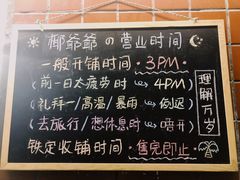 椰爷爷の营业时间
一般开铺时间·3PM·
(前一日太疲劳时→4PM)
(礼拜一/高温/暴雨→倒迟)
(去旅行/想休息时→唔开)
铁定收铺时间·售完即止·
理解万岁